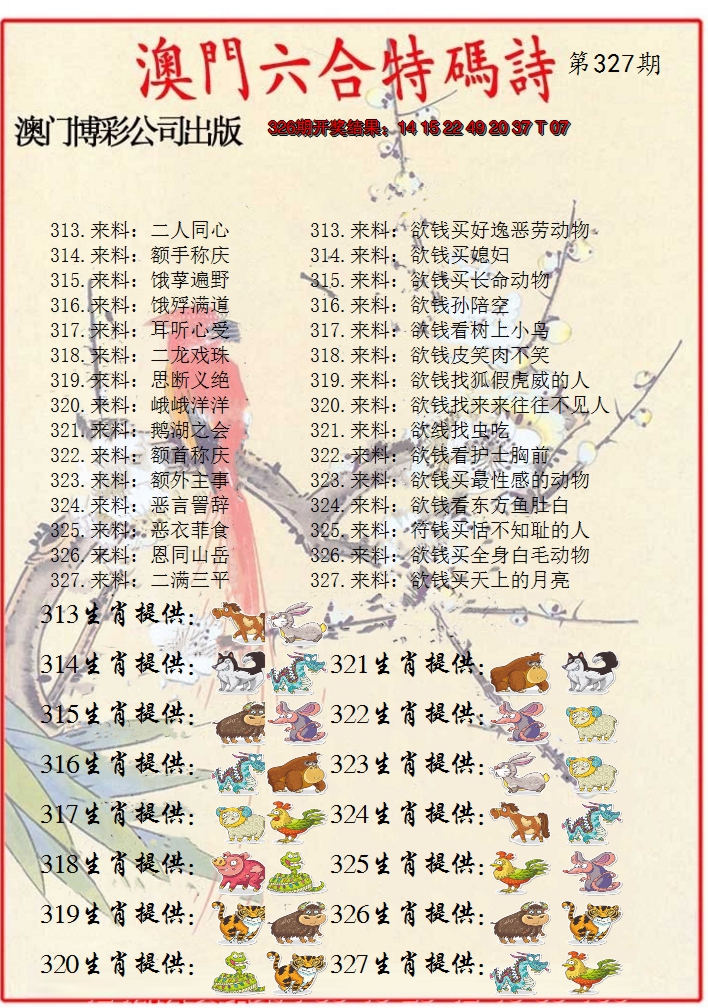 澳門六合特碼詩 第327期
澳门博彩公司出版 326期开奖结果：14 15 22 49 20 37 T 07
313.来料：二人同心 313.来料：欲钱买好逸恶劳动物
314.来料：额手称庆 314.来料：欲钱买媳妇
315.来料：饿莩遍野 315.来料：欲钱买长命动物
316.来料：饿殍满道 316.来料：欲钱孙陪空
317.来料：耳听心受 317.来料：欲钱看树上小鸟
318.来料：二龙戏珠 318.来料：欲钱皮笑肉不笑
319.来料：思断义绝 319.来料：欲钱找狐假虎威的人
320.来料：峨峨洋洋 320.来料：欲钱找来来往往不见人
321.来料：鹅湖之会 321.来料：欲线找虫吃
322.来料：额首称庆 322.来料：欲钱看护士胸前
323.来料：额外主事 323.来料：欲钱买最性感的动物
324.来料：恶言詈辞 324.来料：欲钱看东方鱼肚白
325.来料：恶衣菲食 325.来料：符钱买恬不知耻的人
326.来料：恩同山岳 326.来料：欲钱买全身白毛动物
327.来料：二满三平 327.来料：欲钱买天上的月亮
313生肖提供：
314生肖提供： 321生肖提供：
315生肖提供： 322生肖提供：
316生肖提供： 323生肖提供：
317生肖提供： 324生肖提供：
318生肖提供： 325生肖提供：
319生肖提供： 326生肖提供：
320生肖提供： 327生肖提供：